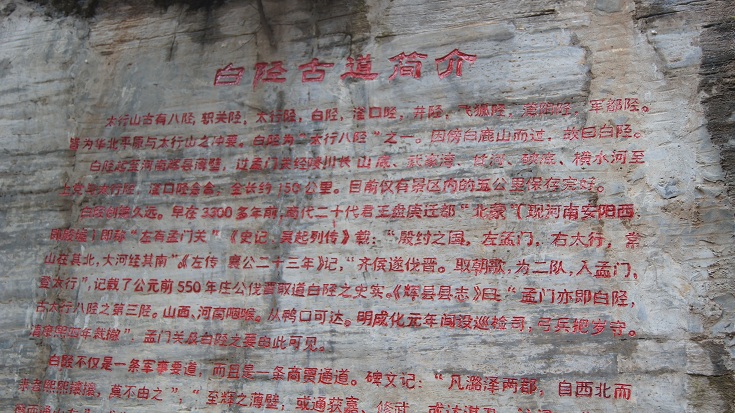 白陉古道简介
太行山古有八陉，轵关陉，太行陉，白陉，滏口陉，井陉，飞狐陉，蒲阴陉，军都陉。
皆为华北平原与太行山之冲要。白陉为“太行八陉”之一。因傍白鹿山而过，故曰白陉。
白陉起至河南辉县薄壁，过孟门关经陵川长山底、横水河至
全长约150公里。目前仅有景区内的五公里保存完好。
白陉创来久远。早在3300多年前，商代二十代君王盘庚迁都“北蒙”（现河南安阳西
即“左有孟门关”《史记·吴起列传》载：“殷纣之国，左孟门，右太行，常
山在其北，大河经其南”《左传 襄公二十三年》记，“齐侯遂伐晋。取朝歌，为二队，入孟门，
登太行”，记载了公元前550年庄公伐晋取道白陉之史实。《辉县县志》曰：“孟门亦即白陉，
太行八陉之第三陉。山西、河南咽喉。从鸭口可达。明成化元年间设巡检司，弓兵把岁守。
清康熙四年裁撤”，孟门关及白陉之要由此可见。
白陉不仅是一条军事要道，而且是一条商贾通道。碑文记：“凡潞泽两郡，自西北而
来者熙熙攘攘，莫不由之”；“至辉之薄壁，或通获嘉、修武